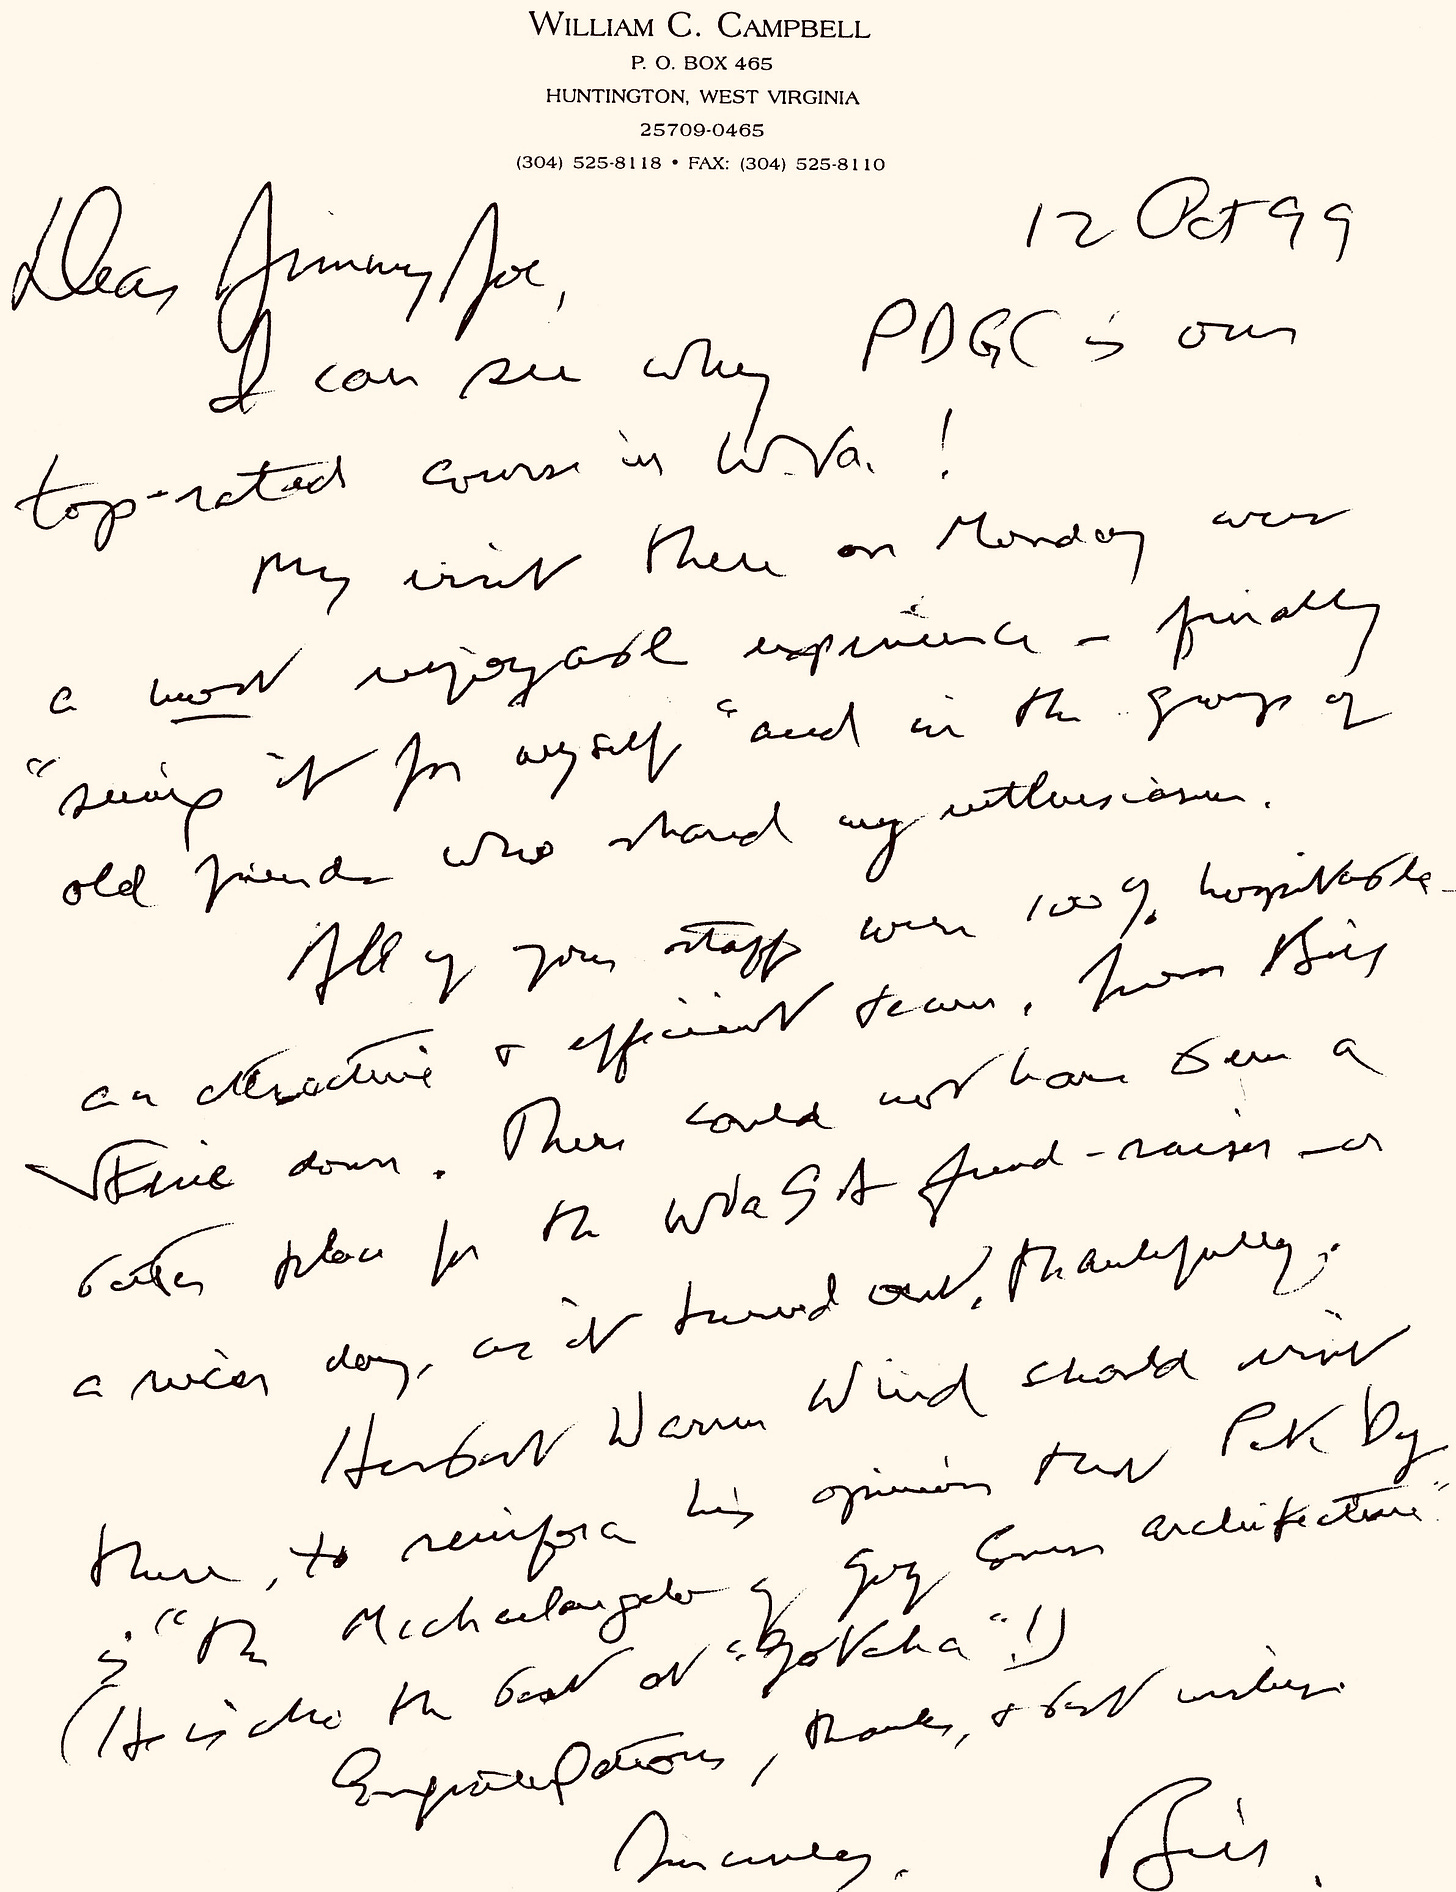 WILLIAM C. CAMPBELL
P. O. BOX 465
HUNTINGTON, WEST VIRGINIA
25709-0465
(304) 525-8118 • FAX: (304) 525-8110
12 Oct 99
Dear Jimmy Joe,
I can see why PDGC is our
top-rated course in W.Va. !
My visit there on Monday was
a most enjoyable experience - finally
"seeing it for myself" and in the group of
old friends who shared my enthusiasm.
All of your staff were 100% hospitable -
an attractive & efficient team, from Bill
down. There could not have been a
better place for the WVaGA fund-raiser - or
a nicer day, as it turned out, thankfully.
Herbert Warren Wind should visit
there, to reinforce his opinion that Pete Dye
is "the Michaelangelo of golf course architecture".
(He is also the best at "Gotcha"!)
Congratulations, thanks, & best wishes.
Sincerely, Bill.